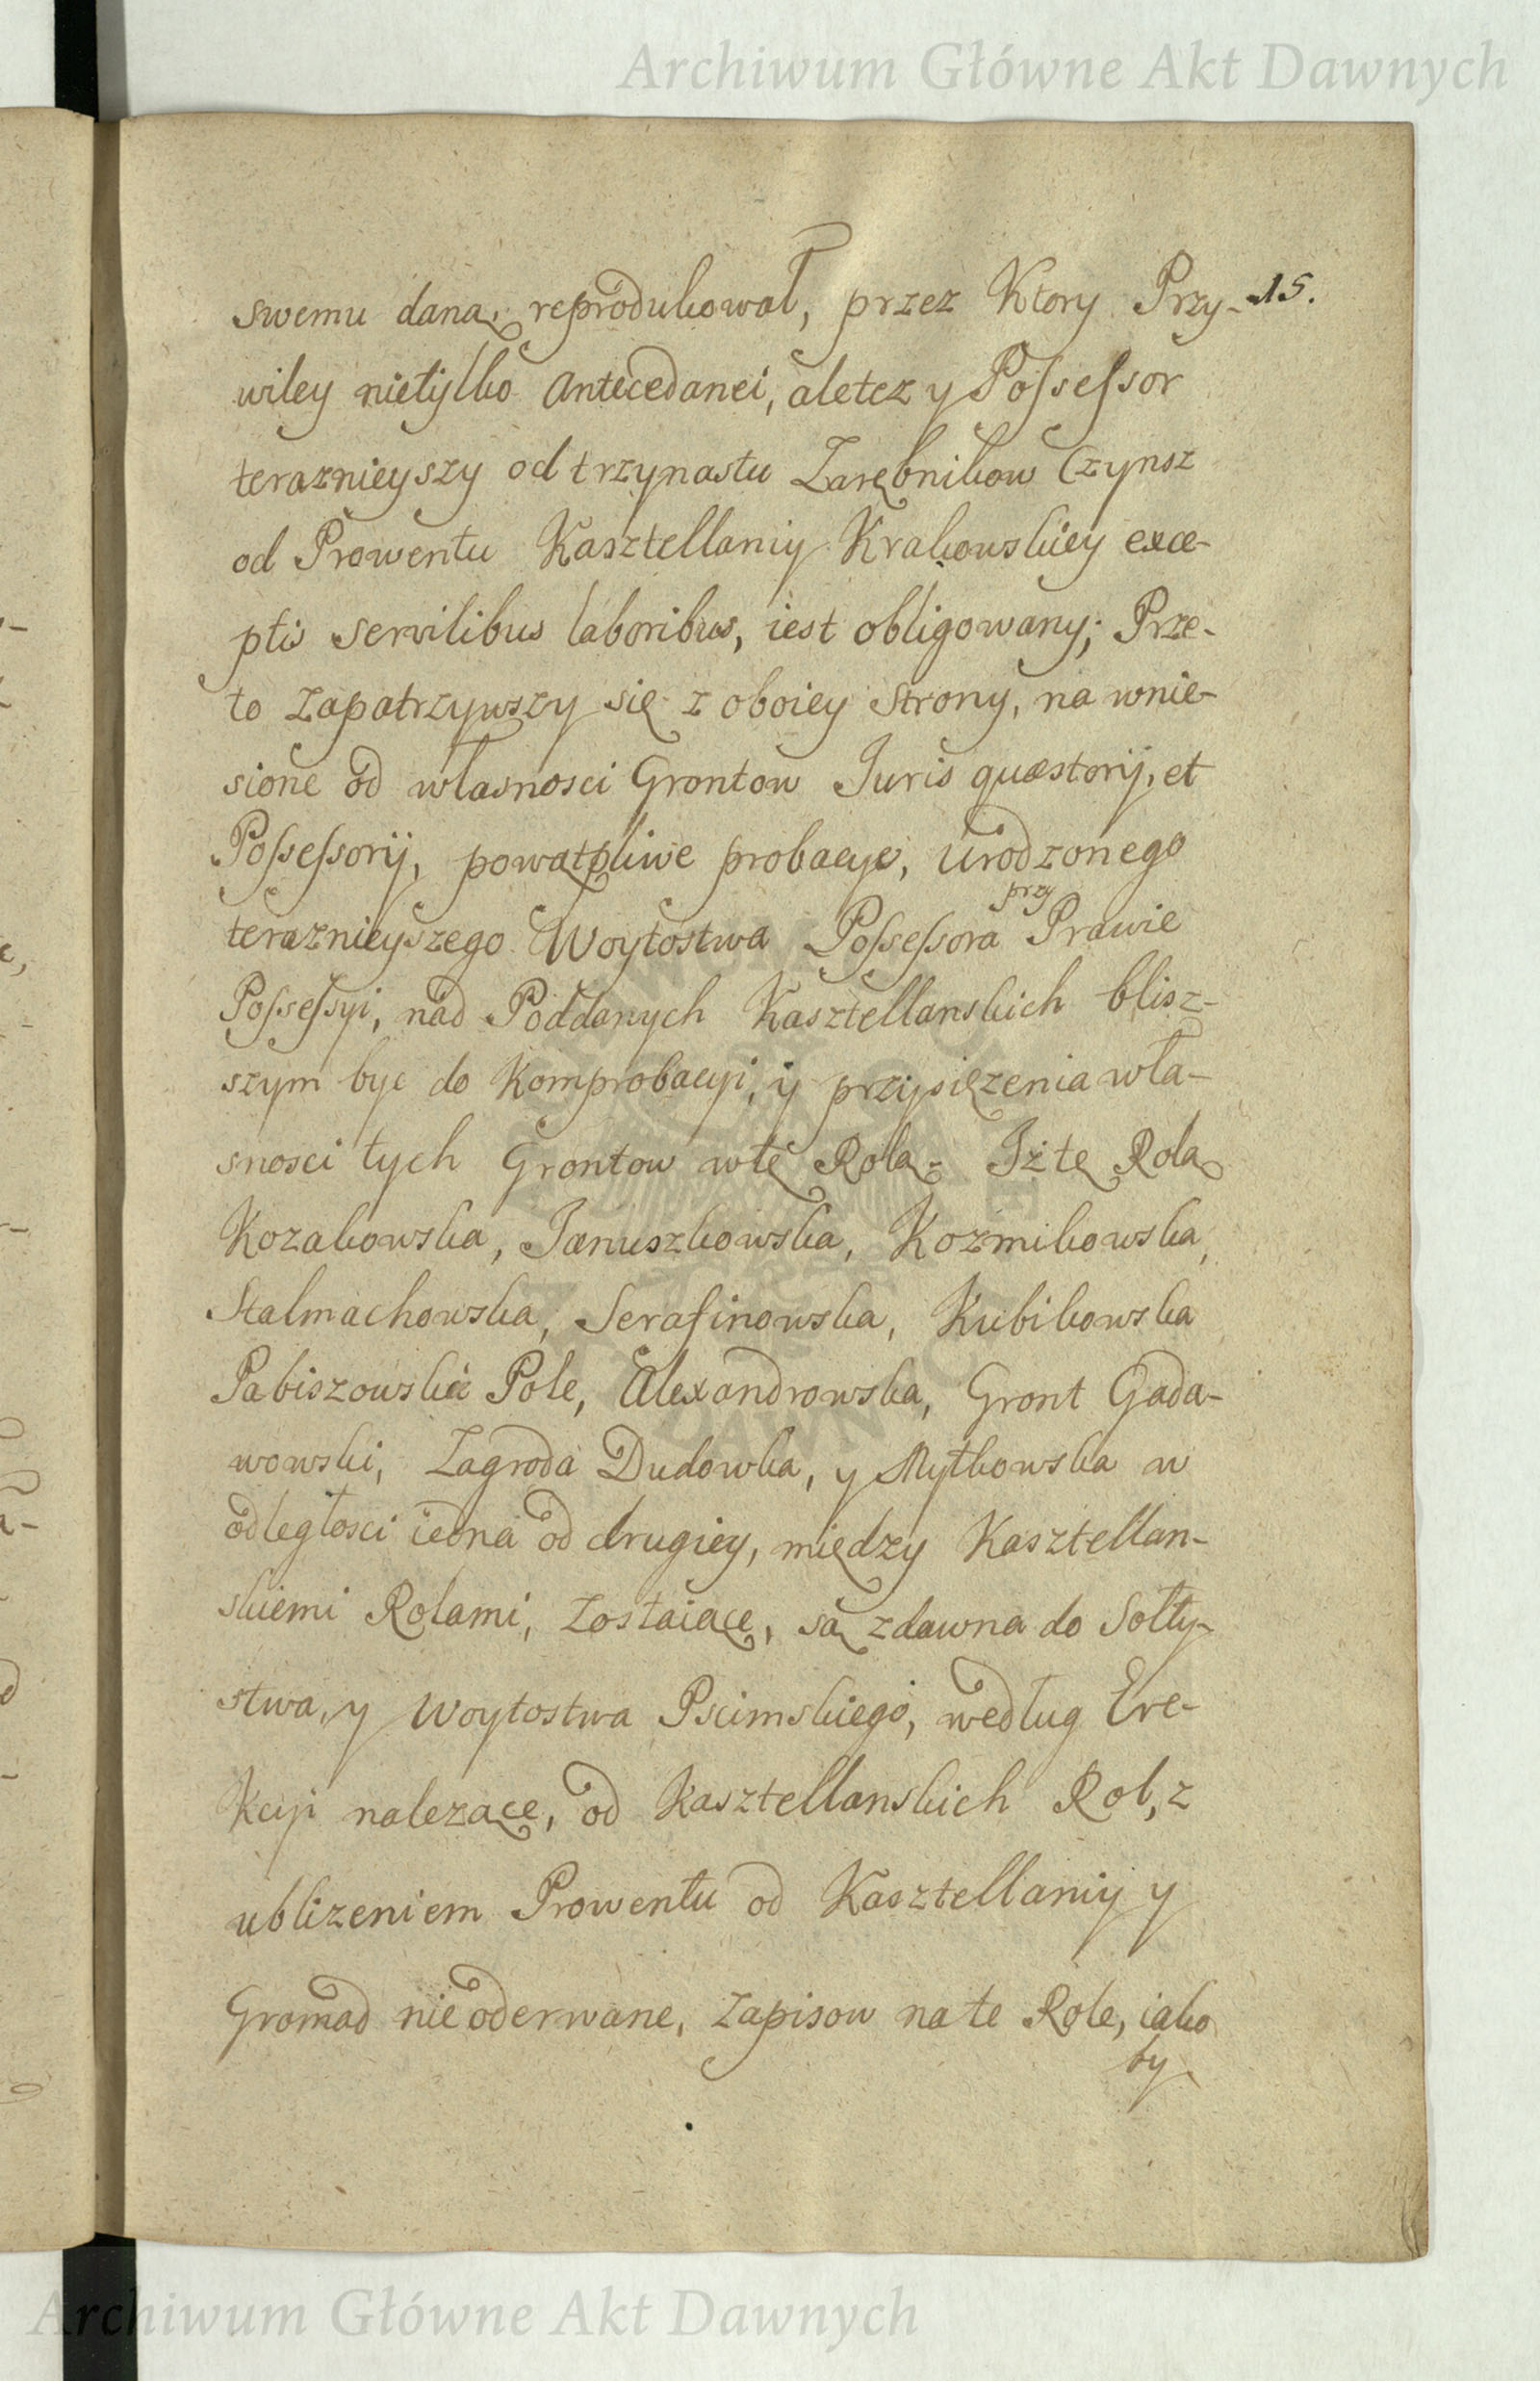 Archiwum Główne Akt Dawnych
swemu daną, reprodukował, przez Ktory Przy- 15.
wiley nietylko Antecedanei, aletez y Possessor
teraznieyszy od trzynastu Zarębnikow Czynsz
od Prowentu Kasztellaniy Krakowskiey exce-
ptis servilibus laboribus, iest obligowany; Prze-
to zapatrzywszy się z oboiey Strony, na wnie-
sione od własnosci Grontow Juris quæstorij, et
Possessorij, powątpliwe probacye, Urodzonego
teraznieyszego Woytostwa Possessora przy Prawie
Possessyi, nad Poddanych Kasztellanskich blisz-
szym byc do Komprobacyi, y przysięzenia wła-
snosci tych Grontow wtę Rolą- Iż tę Rolą
Kozakowska, Januszkowska, Kozmikowska,
Stalmachowska, Serafinowska, Kubikowska
Pabiszowskie Pole, Alexandrowska, Gront Gada-
wowski, Zagroda Dudowka, y Mytkowska w
odległosci iedna od drugiey, między Kasztellan-
skiemi Rolami, zostaiące, są zdawna do Sołty-
stwa, y Woytostwa Pscimskiego, według Ere-
kcyi nalezące, od Kasztellanskich Rol, z
ublizeniem Prowentu od Kasztellaniy y
Gromad nie oderwane, zapisow na te Role, iako
by
Archiwum Główne Akt Dawnych